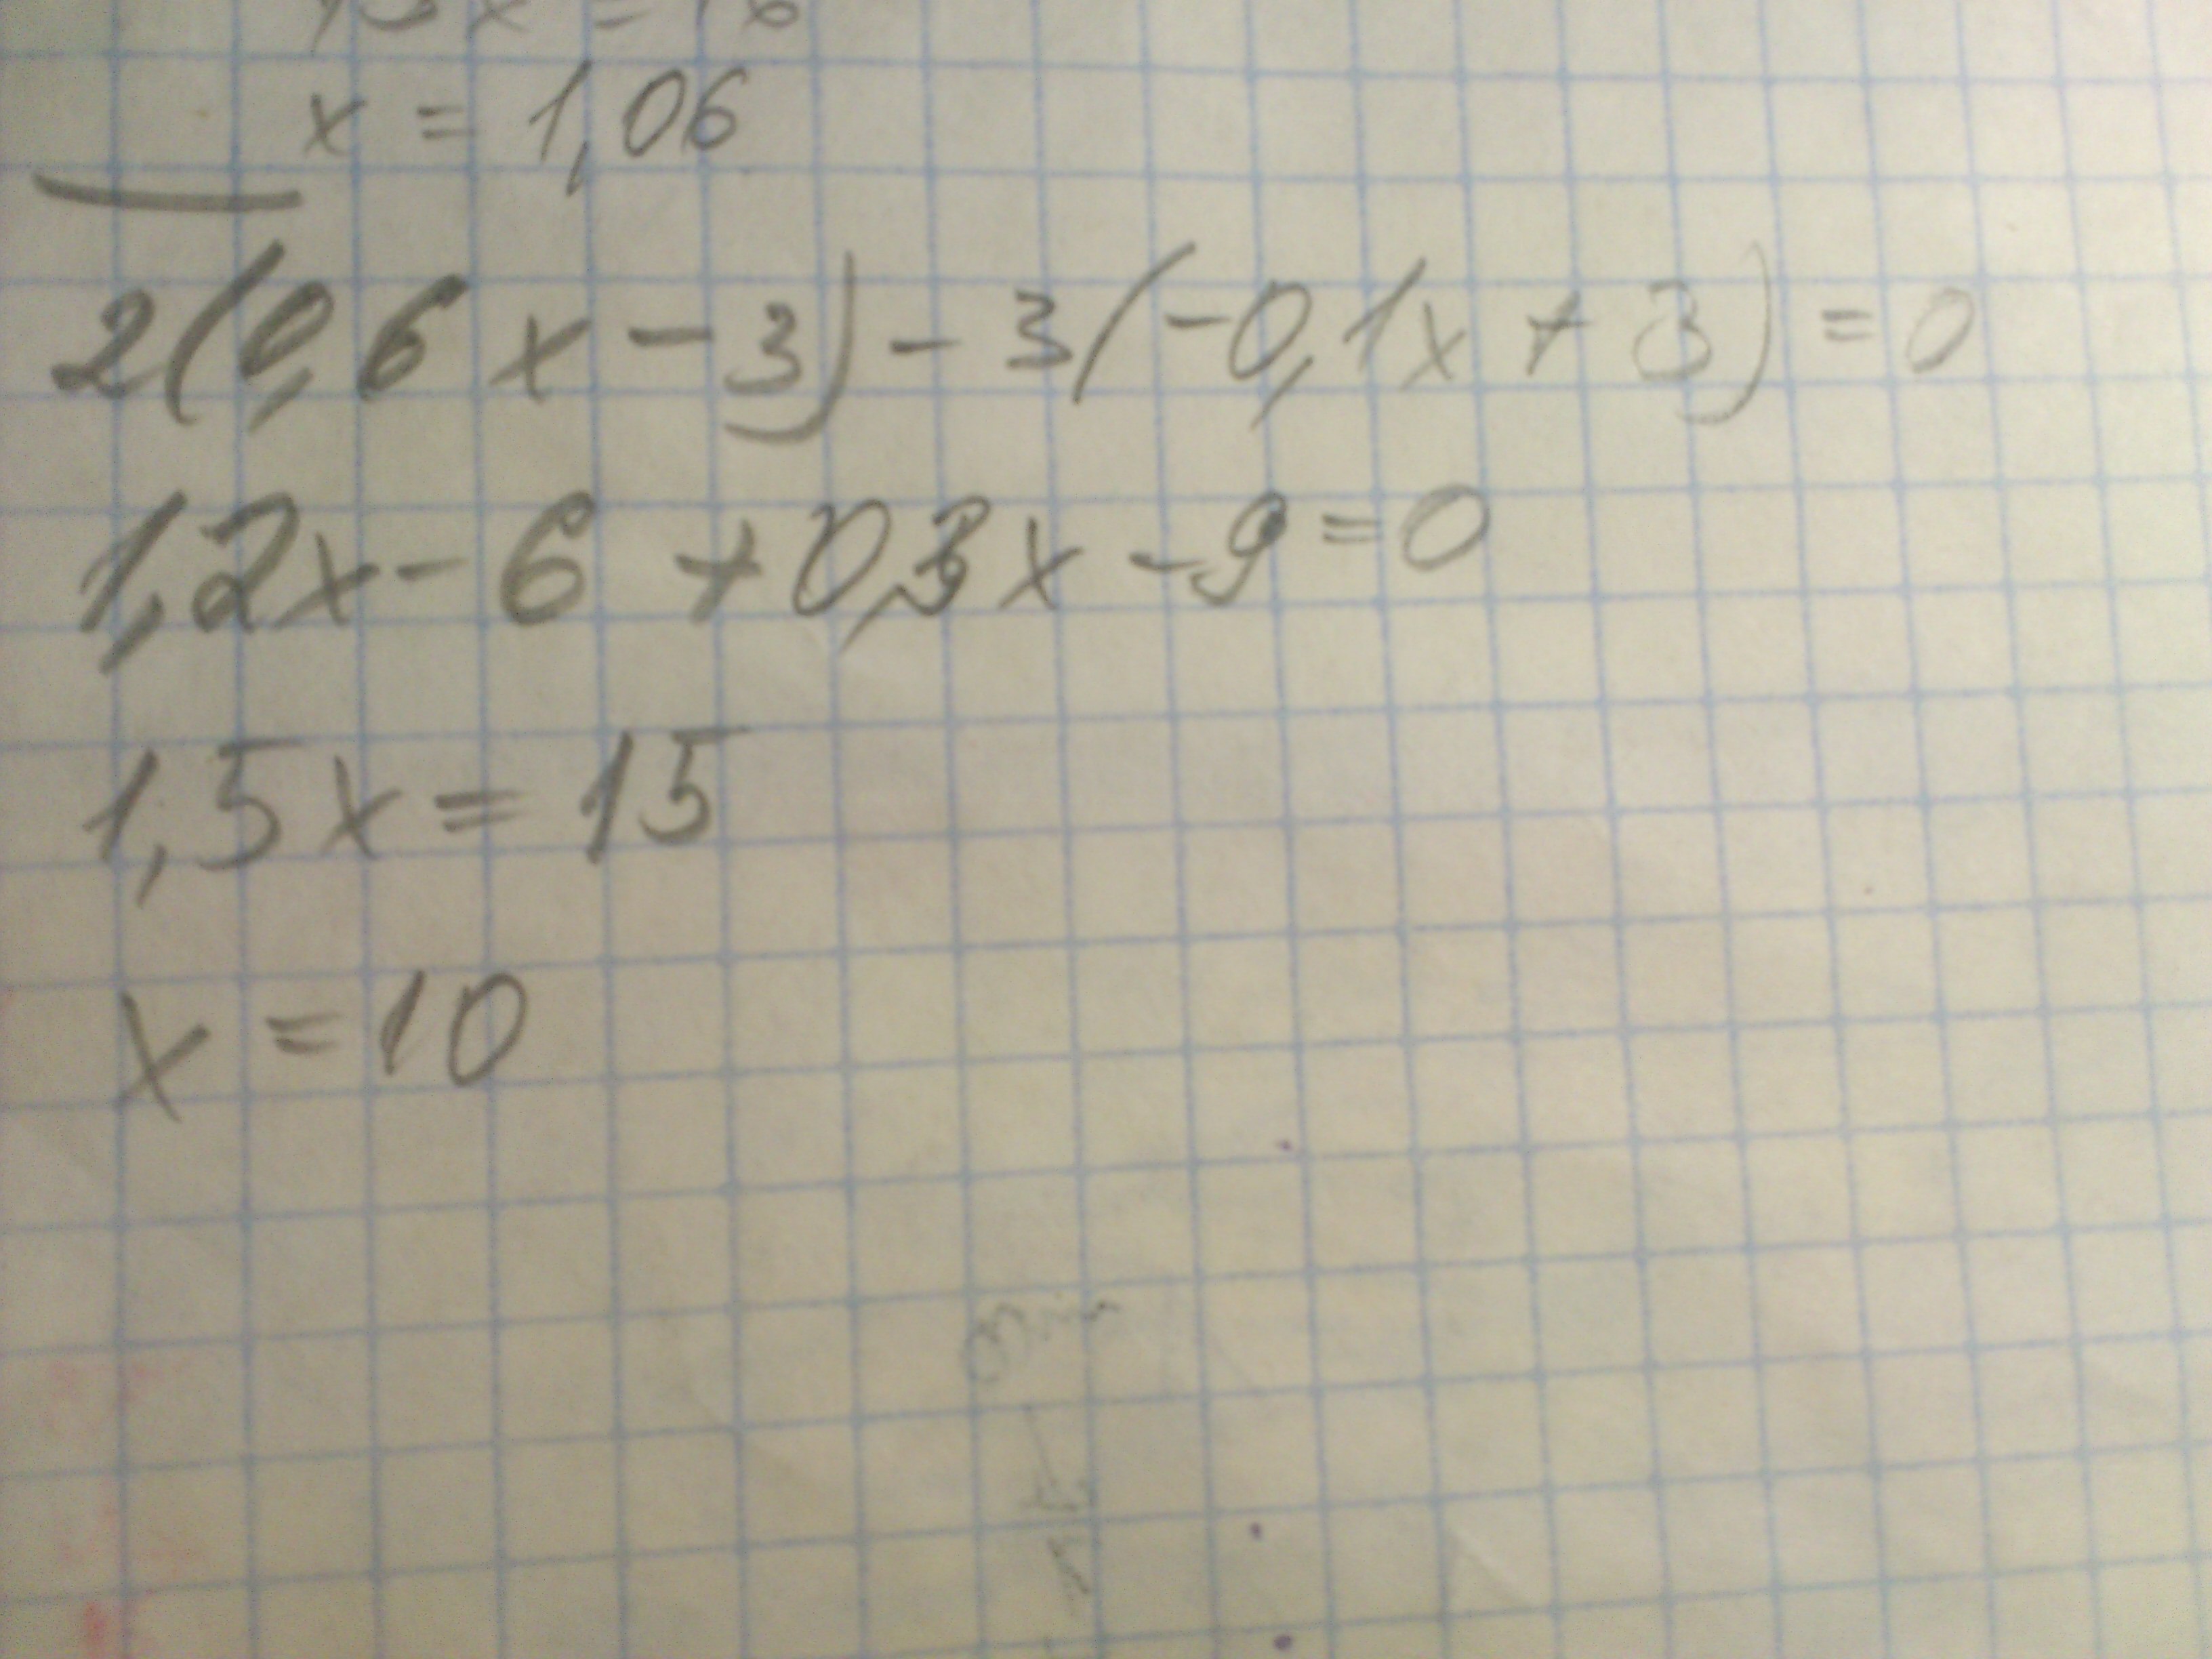 x = 1,06
2(0,6x - 3) - 3(-0,1x + 3) = 0
1,2x - 6 + 0,3x - 9 = 0
1,5x = 15
x = 10